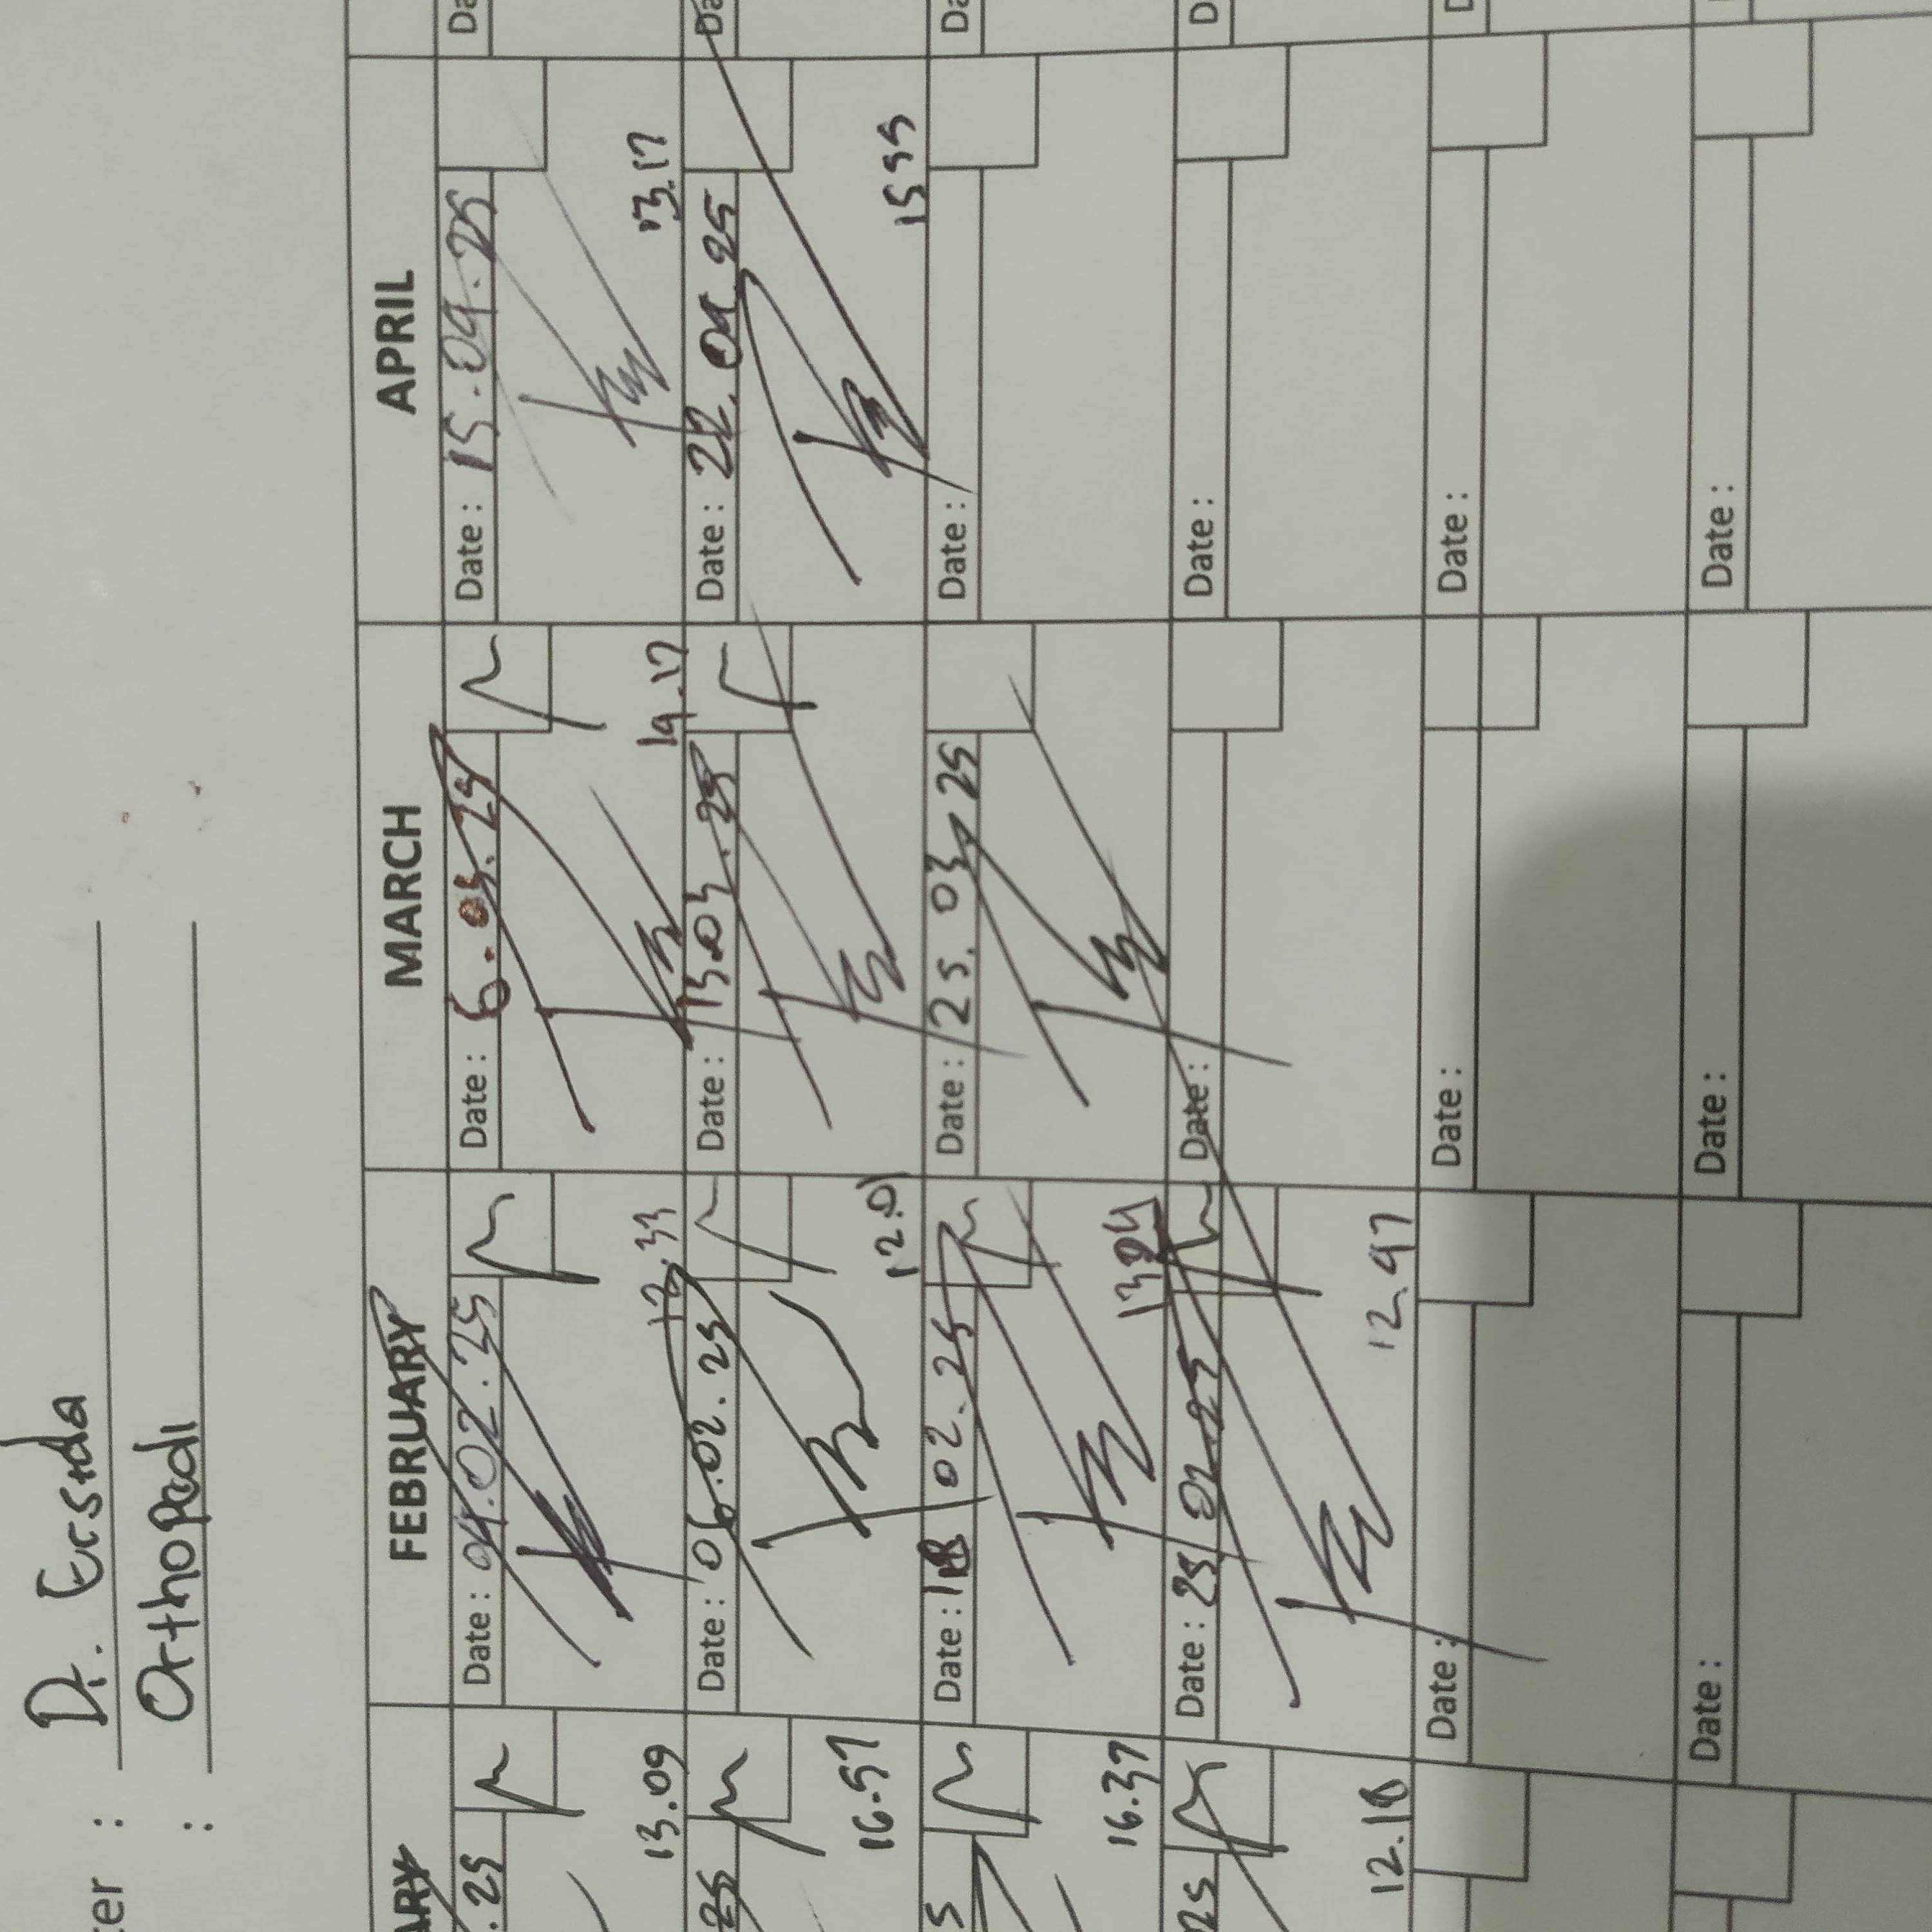 ter : Dr. Ersida
: Orthopadi
ARY FEBRUARY MARCH APRIL
.25 Date : 04.02.25 Date : 6.03.25 Date : 15.04.25 Da
13.09 19.17 13.17
25 Date : 06.02.25 Date : 13.03.25 Date : 22.04.25 Da
16.57 12.01 15 55
5 Date : 02.25 Date : 25.03.25 Date : Da
16.37
25 Date : 25 02.25 Date : Date : D
12.18 12.47
Date : Date : Date : D
Date : Date : Date :